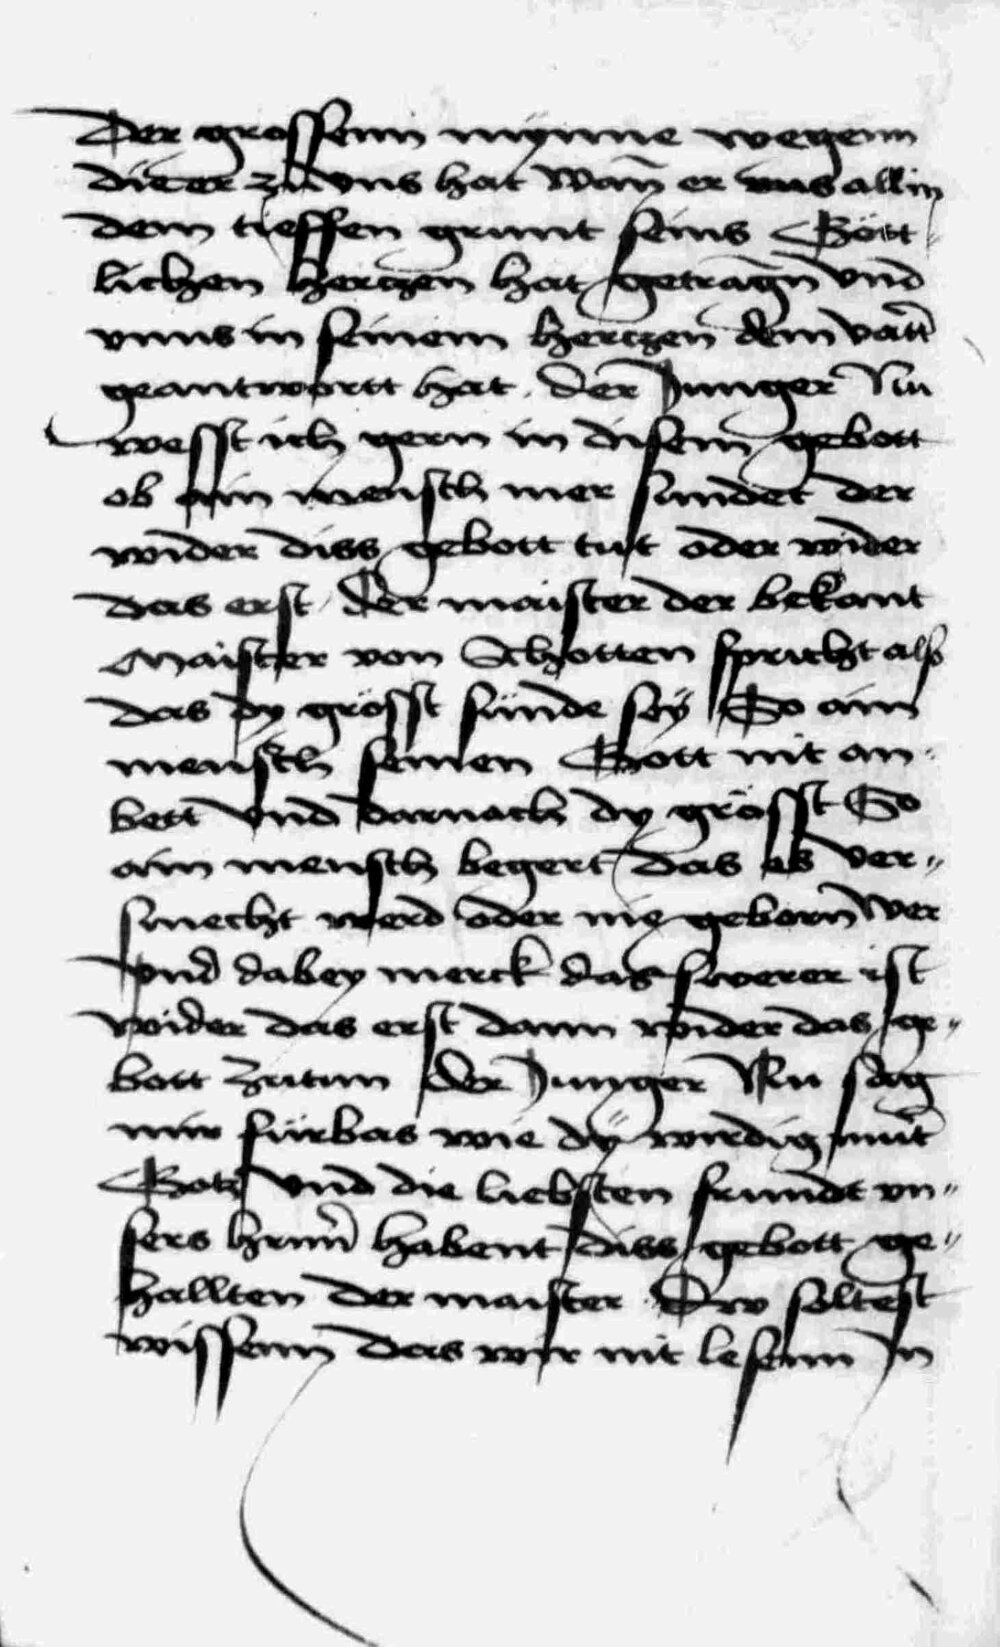 Der grossenn mynne wegenn
die er zu vns hat Wañ er vns all in
dem tieffen grunt seins Gött„
lichen herczen hat getragñ vnd
vnns in seinem herczen dem vatt̃
geantwortt hat . der Junger Nu
wesst ich gern in disem gebott
ob ain mensch mer sundet der
wider diss gebott tut oder wider
das erst . Der maister der bekant
Maister von Schotten spricht also
das dy grösst sünde sey So ain
mensch seinen Gott nit an„
bett vnd darnach dy grösst So
ain mensch begert das es ver„
smecht werd oder nie geborñ wer
vnd dabey merck das swerer ist
wider das erst dann wider das ge„
bott zutun der Junger Nu sag
mir fürbas wie dy wirdig mut̃
Gotz vnd die liebsten frundt vn„
sers hrnñ habent diss gebott ge„
hallten der maister . Dw soltest
wissenn das wir nit lesenn In